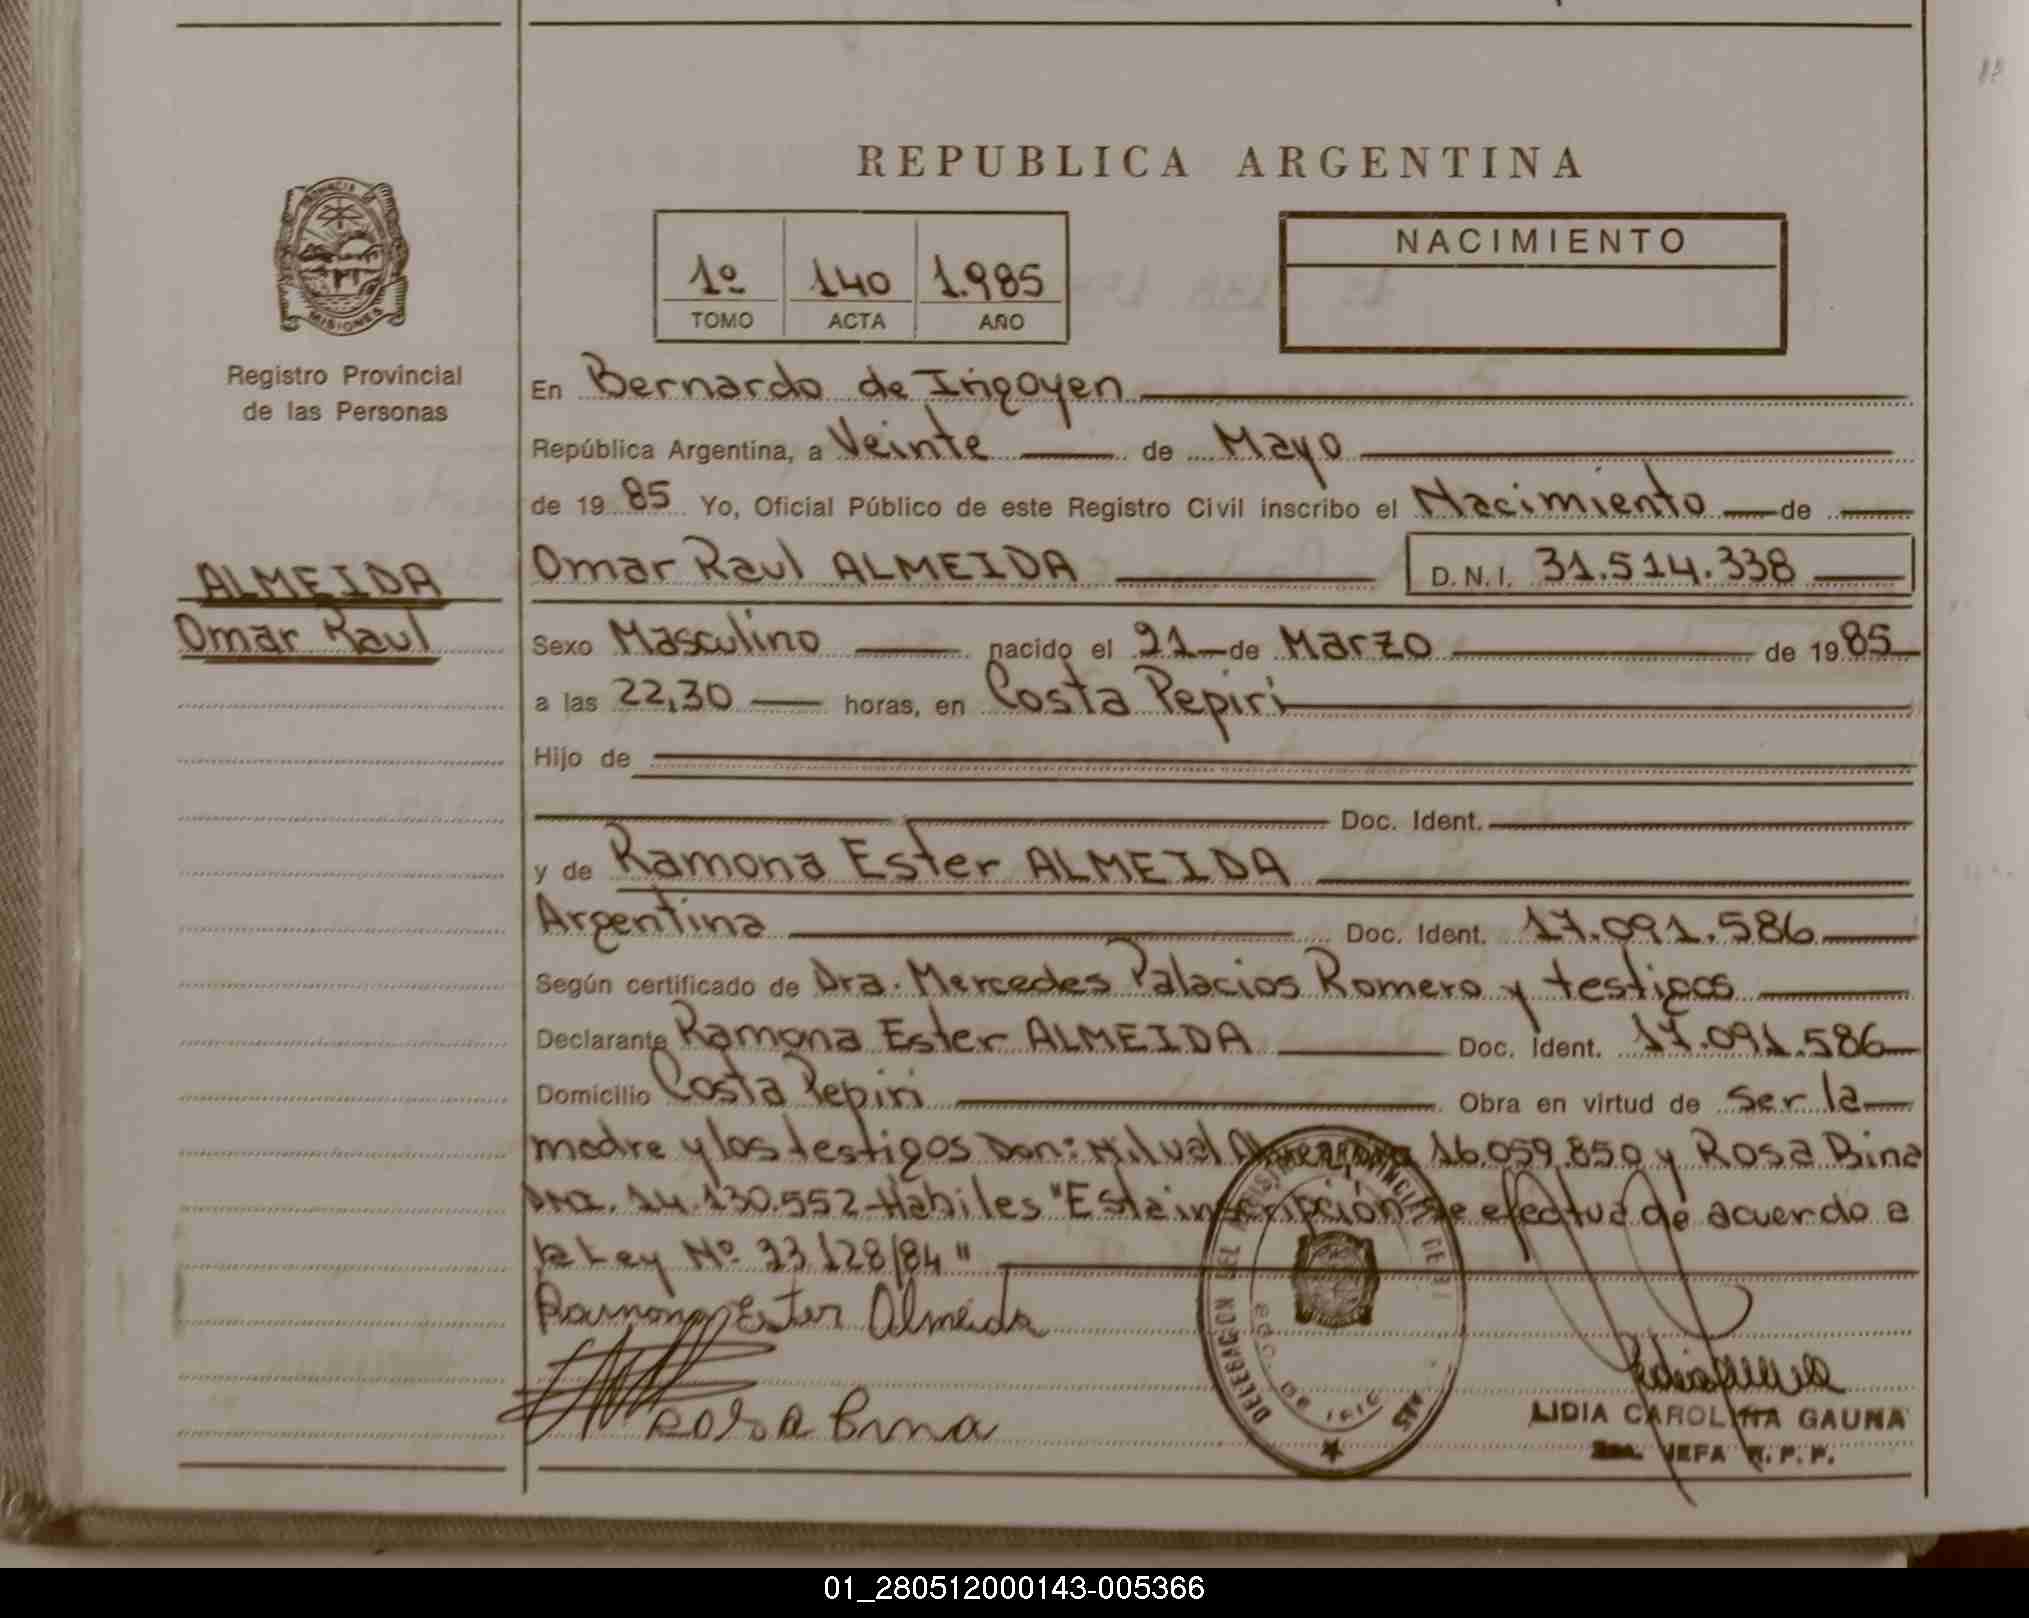 REPUBLICA ARGENTINA
PROVINCIA
MISIONES
Registro Provincial
de las Personas
1º 140 1.985
TOMO ACTA AÑO
NACIMIENTO
En Bernardo de Irigoyen
República Argentina, a Veinte de Mayo
de 1985 Yo, Oficial Público de este Registro Civil inscribo el Nacimiento de
ALMEIDA
Omar Raul
Omar Raul ALMEIDA D.N.I. 31.514.338
Sexo Masculino nacido el 21 de Marzo de 1985
a las 22,30 horas, en Costa Pepiri
Hijo de
Doc. Ident.
y de Ramona Ester ALMEIDA
Argentina Doc. Ident. 17.091.586
Según certificado de Dra. Mercedes Palacios Romero y testigos
Declarante Ramona Ester ALMEIDA Doc. Ident. 17.091.586
Domicilio Costa Pepiri Obra en virtud de Ser la
madre y los testigos Don: 16.059.850 y Rosa Bina
DNI. 14.130.552-Habiles "Esta inscripción se efectua de acuerdo a
la Ley Nº 23.128/84"
Ramona Ester Almeida
Rosa Bina
DELEGACION DEL
LIDIA CAROLINA GAUNA
JEFA R.P.P.
01_280512000143-005366